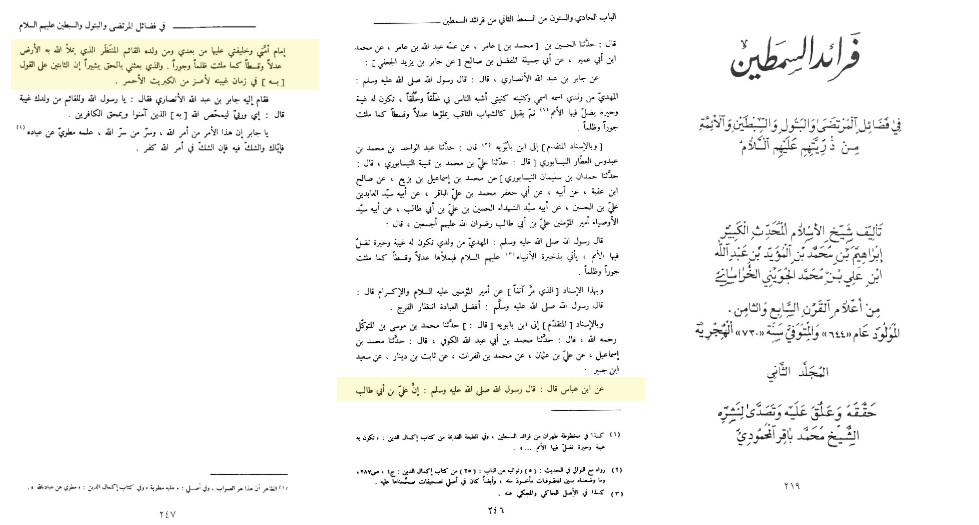 فرائد السمطين
في فضائل المرتضى والبتول والسبطين والأئمة
من ذريتهم عليهم السلام
تأليف شيخ الإسلام المحدث الكبير
إبراهيم بن محمد بن المؤيد بن عبد الله
ابن علي بن محمد الجويني الخراساني
من أعلام القرن السابع والثامن .
المولود عام «٦٤٤» والمتوفى سنة «٧٣٠» الهجرية
المجلد الثاني
حققه وعلق عليه وتصدى لنشره
الشيخ محمد باقر المحمودي
٢١٩
الباب الحادي والستون من السمط الثاني من فرائد السمطين
قال : حدّثنا الحسين بن [ محمد بن ] عامر ، عن عمّه عبد الله بن عامر ، عن محمد
ابن أبي عمير ، عن أبي جميلة المفضل بن صالح [ عن جابر بن يزيد الجعفي ]
عن جابر بن عبد الله الأنصاري ، قال : قال رسول الله صلى الله عليه وسلم :
المهديّ من ولدي اسمه اسمي وكنيته كنيتي أشبه الناس بي خَلْقاً وخُلُقاً ، تكون له غيبة
وحيرة يضلّ فيها الأمم (١) ثمّ يقبل كالشهاب الثاقب يملؤها عدلاً وقسطاً كما ملئت
جوراً وظلماً .
[ وبالإسناد المتقدم ] إلى ابن بابَوَيه (٢) قال : حدّثنا عبد الواحد بن محمد بن
عبدوس العطّار النيسابوري [ قال : حدّثنا عليّ بن محمد بن قتيبة النيسابوري ، قال :
حدّثنا حمدان بن سليمان النيسابوري ] عن محمد بن إسماعيل بن بزيع ، عن صالح
ابن عقبة ، عن أبيه ، عن أبي جعفر محمد بن عليّ الباقر ، عن أبيه سيّد العابدين
عليّ بن الحسين ، عن أبيه سيّد الشهداء الحسين بن عليّ بن أبي طالب ، عن أبيه سيّد
الأوصياء أمير المؤمنين عليّ بن أبي طالب رضوان الله عليهم أجمعين ، قال :
قال رسول الله صلى الله عليه وسلم : المهديّ من ولدي تكون له غيبة وحيرة تضلّ
فيها الأمم ، يأتي بذخيرة الأنبياء (٣) عليهم السلام فيملأها عدلاً وقسطاً كما ملئت
جوراً وظلماً .
وبهذا الإسناد [ الذي مرّ آنفاً ] عن أمير المؤمنين عليه السلام والإكرام قال :
قال رسول الله صلى الله عليه وسلّم : أفضل العبادة انتظار الفرج .
وبالإسناد [ المتقدم ] إلى ابن بابويه [ قال : ] حدّثنا محمد بن موسى بن المتوكّل
رحمه الله ، قال : حدّثنا محمد بن أبي عبد الله الكوفي ، قال : حدّثنا محمد بن
إسماعيل ، عن عليّ بن عثمان ، عن محمد بن الفرات ، عن ثابت بن دينار ، عن سعيد
ابن جبير
عن ابن عباس قال : قال رسول الله صلى الله عليه وسلم : إنّ عليّ بن أبي طالب
(١) كذا في مخطوطة طهران من فرائد السمطين ، وفي الطبعة القديمة من كتاب إكمال الدين : « تكون به
غيبة وحيرة تضلّ فيها الأمم ... » .
(٢) رواه مع التوالي في الحديث : (٥) وتواليه من الباب : (٢٥) من كتاب إكمال الدين : ج١ ، ص٢٨٧،
وما وضعناه بين المعقوفات مأخوذ منه ، وأيضاً كان في أصلي تصحيفات صحّحناها عليه .
(٣) كذا في الأصل الحاكي والمحكي عنه .
٢٤٦
في فضائل المرتضى والبتول والسبطين عليهم السلام
إمام أمّتي وخليفتي عليها من بعدي ومن ولده القائم المنتظَر الذي يملأ الله به الأرض
عدلاً وقسطاً كما ملئت ظلماً وجوراً . والذي بعثني بالحق بشيراً إن الثابتين على القول
[ به ] في زمان غيبته لأعز من الكبريت الأحمر .
فقام إليه جابر بن عبد الله الأنصاري فقال : يا رسول الله وللقائم من ولدك غيبة
قال : إي وربّي ليمحّص الله [ به ] الذين آمنوا ويمحق الكافرين .
يا جابر إن هذا الأمر من أمر الله ، وسرّ من سرّ الله ، علمه مطويّ عن عباده (١)
فإيّاك والشك فيه فإن الشكّ في أمر الله كفر .
(١) الظاهر أن هذا هو الصواب ، وفي أصلي : « عليه مطوية » وفي كتاب إكمال الدين : « مطوي عن عبادالله » .
٢٤٧